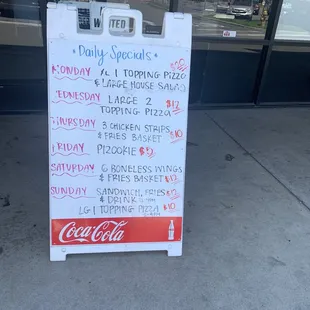 Daily Specials
MONDAY XL 1 TOPPING PIZZA
& LARGE HOUSE SALAD
WEDNESDAY LARGE 2
TOPPING PIZZA $12
THURSDAY 3 CHICKEN STRIPS
& FRIES BASKET $10
FRIDAY PIZOOKIE $5
SATURDAY 6 BONELESS WINGS
& FRIES BASKET $12
SUNDAY SANDWICH, FRIES
& DRINK $12
LG 1 TOPPING PIZZA $10
Coca-Cola